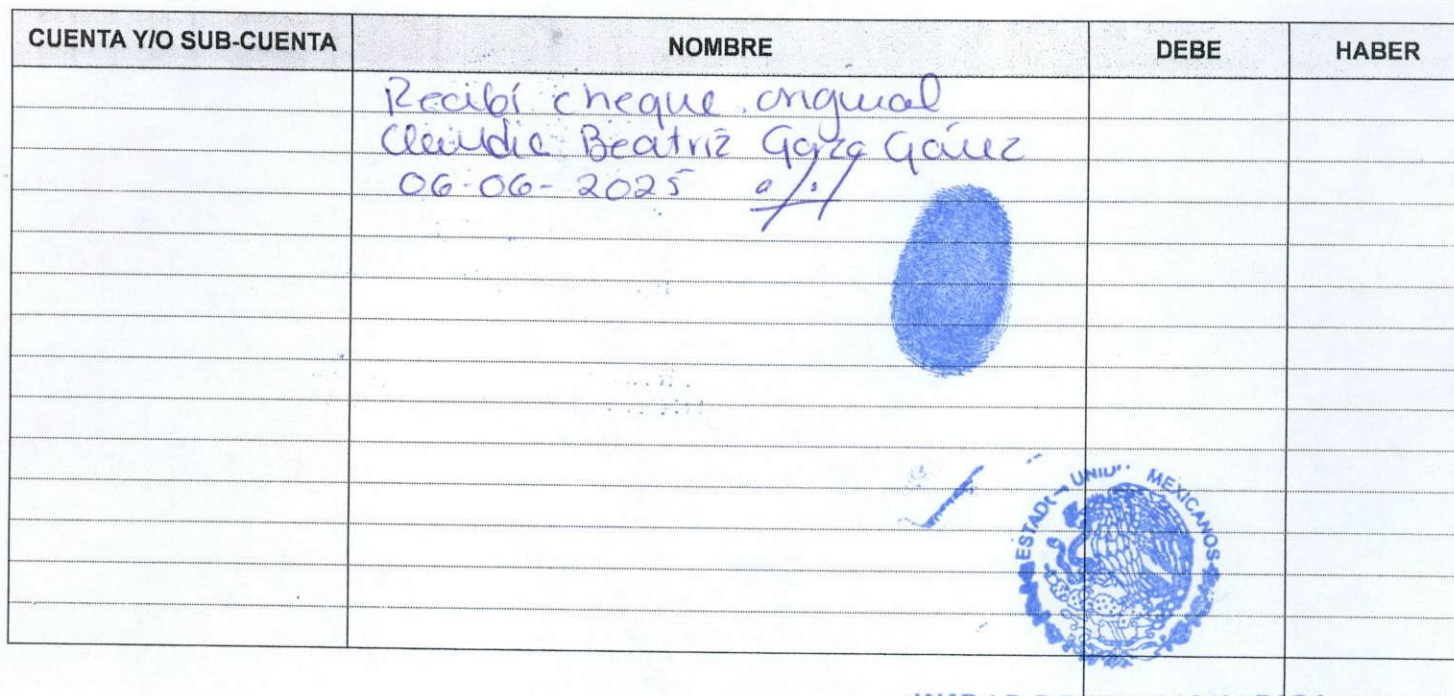 CUENTA Y/O SUB-CUENTA NOMBRE DEBE HABER
Recibí cheque original
Claudia Beatriz Garza Gámez
06-06-2025
ESTADOS UNIDOS MEXICANOS